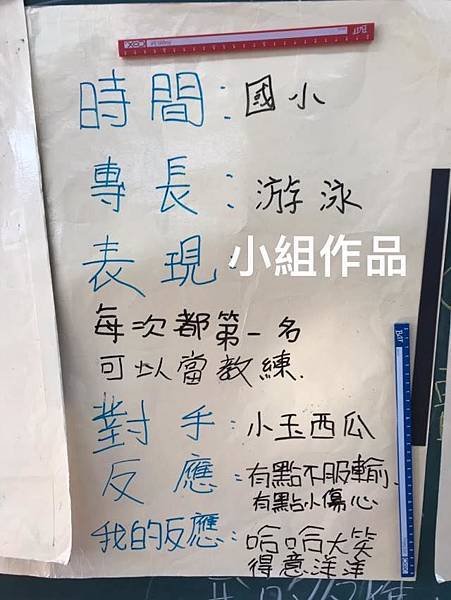 時間：國小
專長：游泳
表現：
小組作品
每次都第一名
可以當教練.
對手：小玉西瓜
反應：有點不服輸、
有點小傷心
我的反應：哈哈大笑
得意洋洋